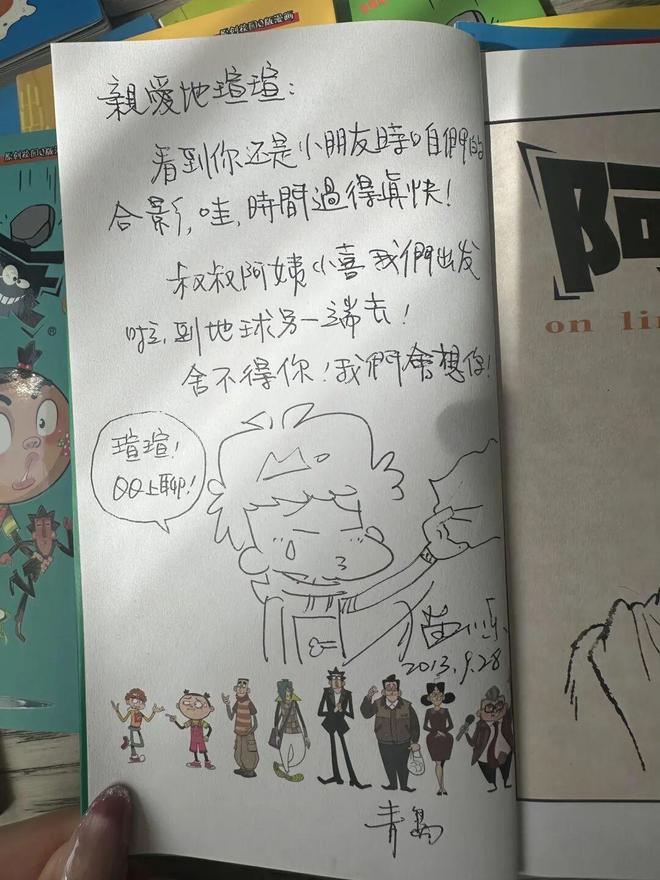 原创校园Q版漫画
親愛地瑄瑄:
看到你还是小朋友時咱們的
合影,哇,時間過得真快!
叔叔阿姨小喜我們出发
啦,到地球另一端去!
舍不得你!我們會想你!
瑄瑄!
QQ上聊!
2013.9.28
青島
阿
on lin